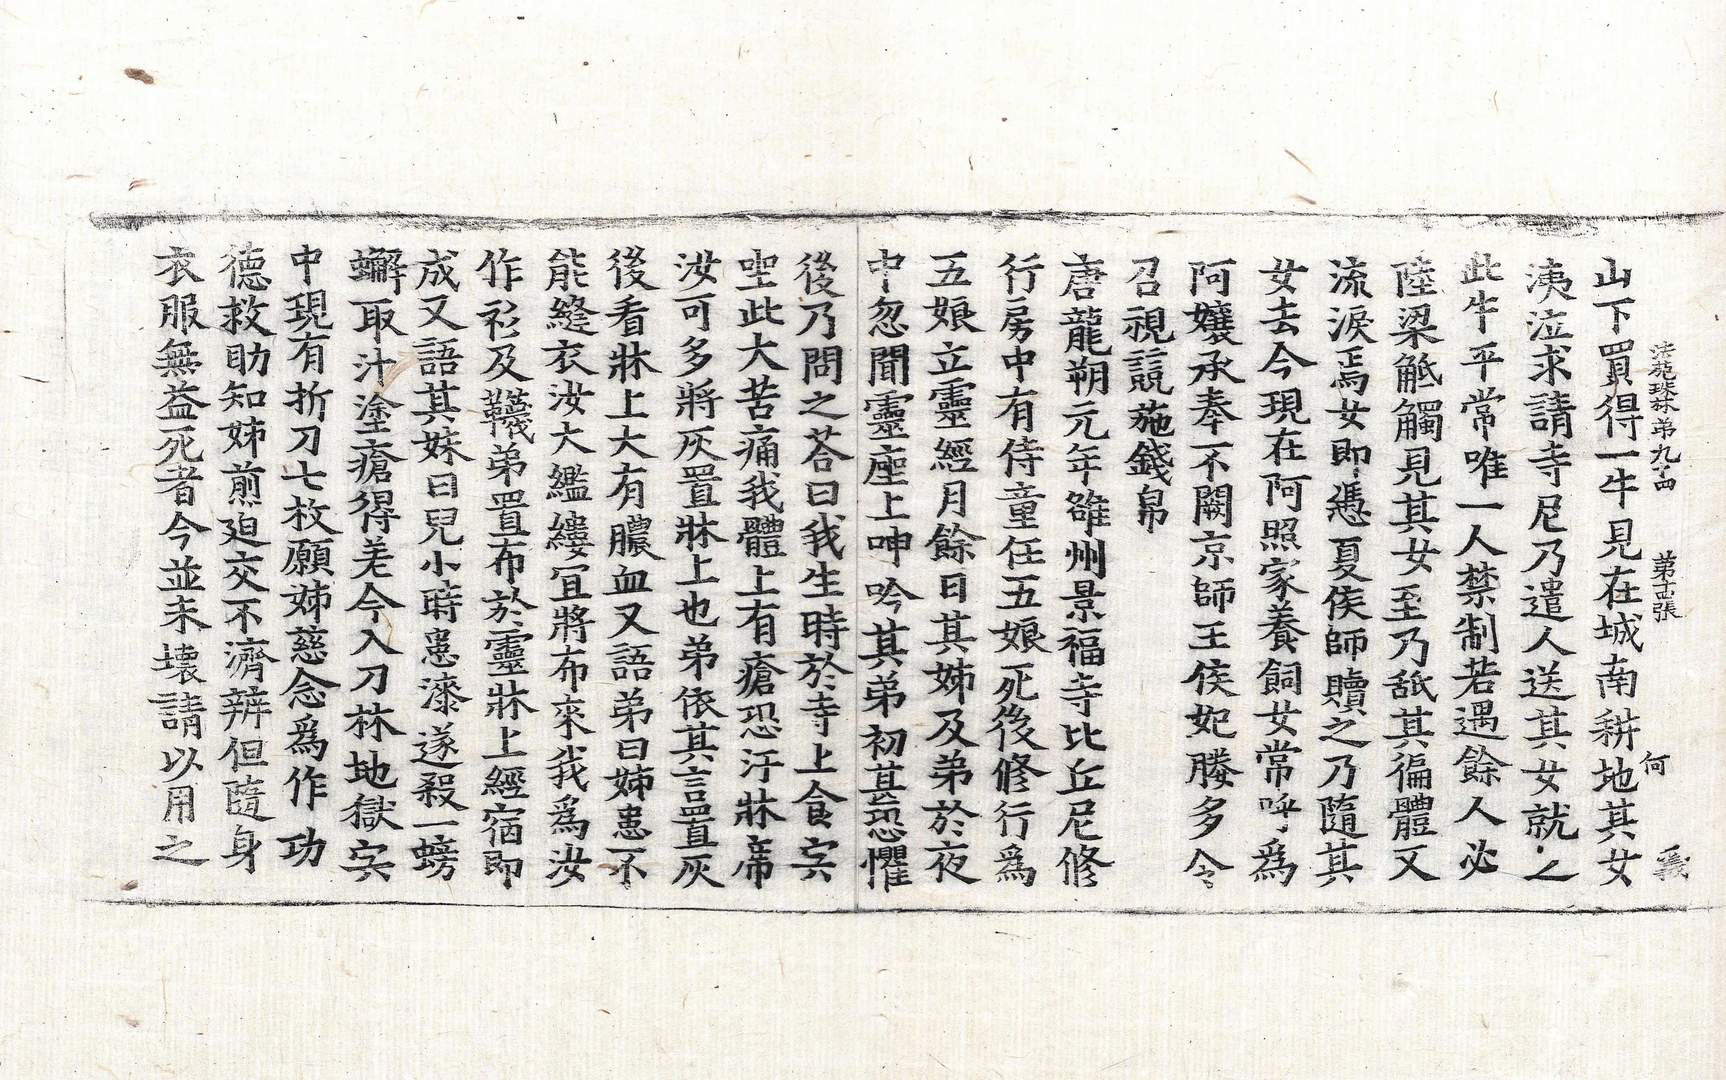 法苑珠林第九十四 第十四張 何 義
山下買得一牛見在城南耕地其女
洟泣求請寺尼乃遣人送其女就之
此牛平常唯一人禁制若遇餘人必
陸梁觝觸見其女至乃舐其徧體又
流淚焉女即憑夏侯師贖之乃隨其
女去今現在阿照家養飼女常呼為
阿孃承奉不闕京師王侯妃媵多令
召視競施錢帛
唐龍朔元年雒州景福寺比丘尼修
行房中有侍童任五娘死後修行為
五娘立靈經月餘日其姊及弟於夜
中忽聞靈座上呻吟其弟初甚恐懼
後乃問之荅曰我生時於寺上食宍
坐此大苦痛我體上有瘡恐汙牀帝
汝可多將灰置牀上也弟依其言置灰
後看牀上大有膿血又語弟曰姊患不
能縫衣汝大繿縷宜將布來我為汝
作衫及韈弟置布於靈牀上經宿即
成又語其姝曰兒小時患漆遂殺一螃
蠏取汁塗瘡得差今入刀林地獄宍
中現有折刀七枚願姊慈念為作功
德救助知姊煎迫交不濟辦但隨身
衣服無益死者今並未壞請以用之